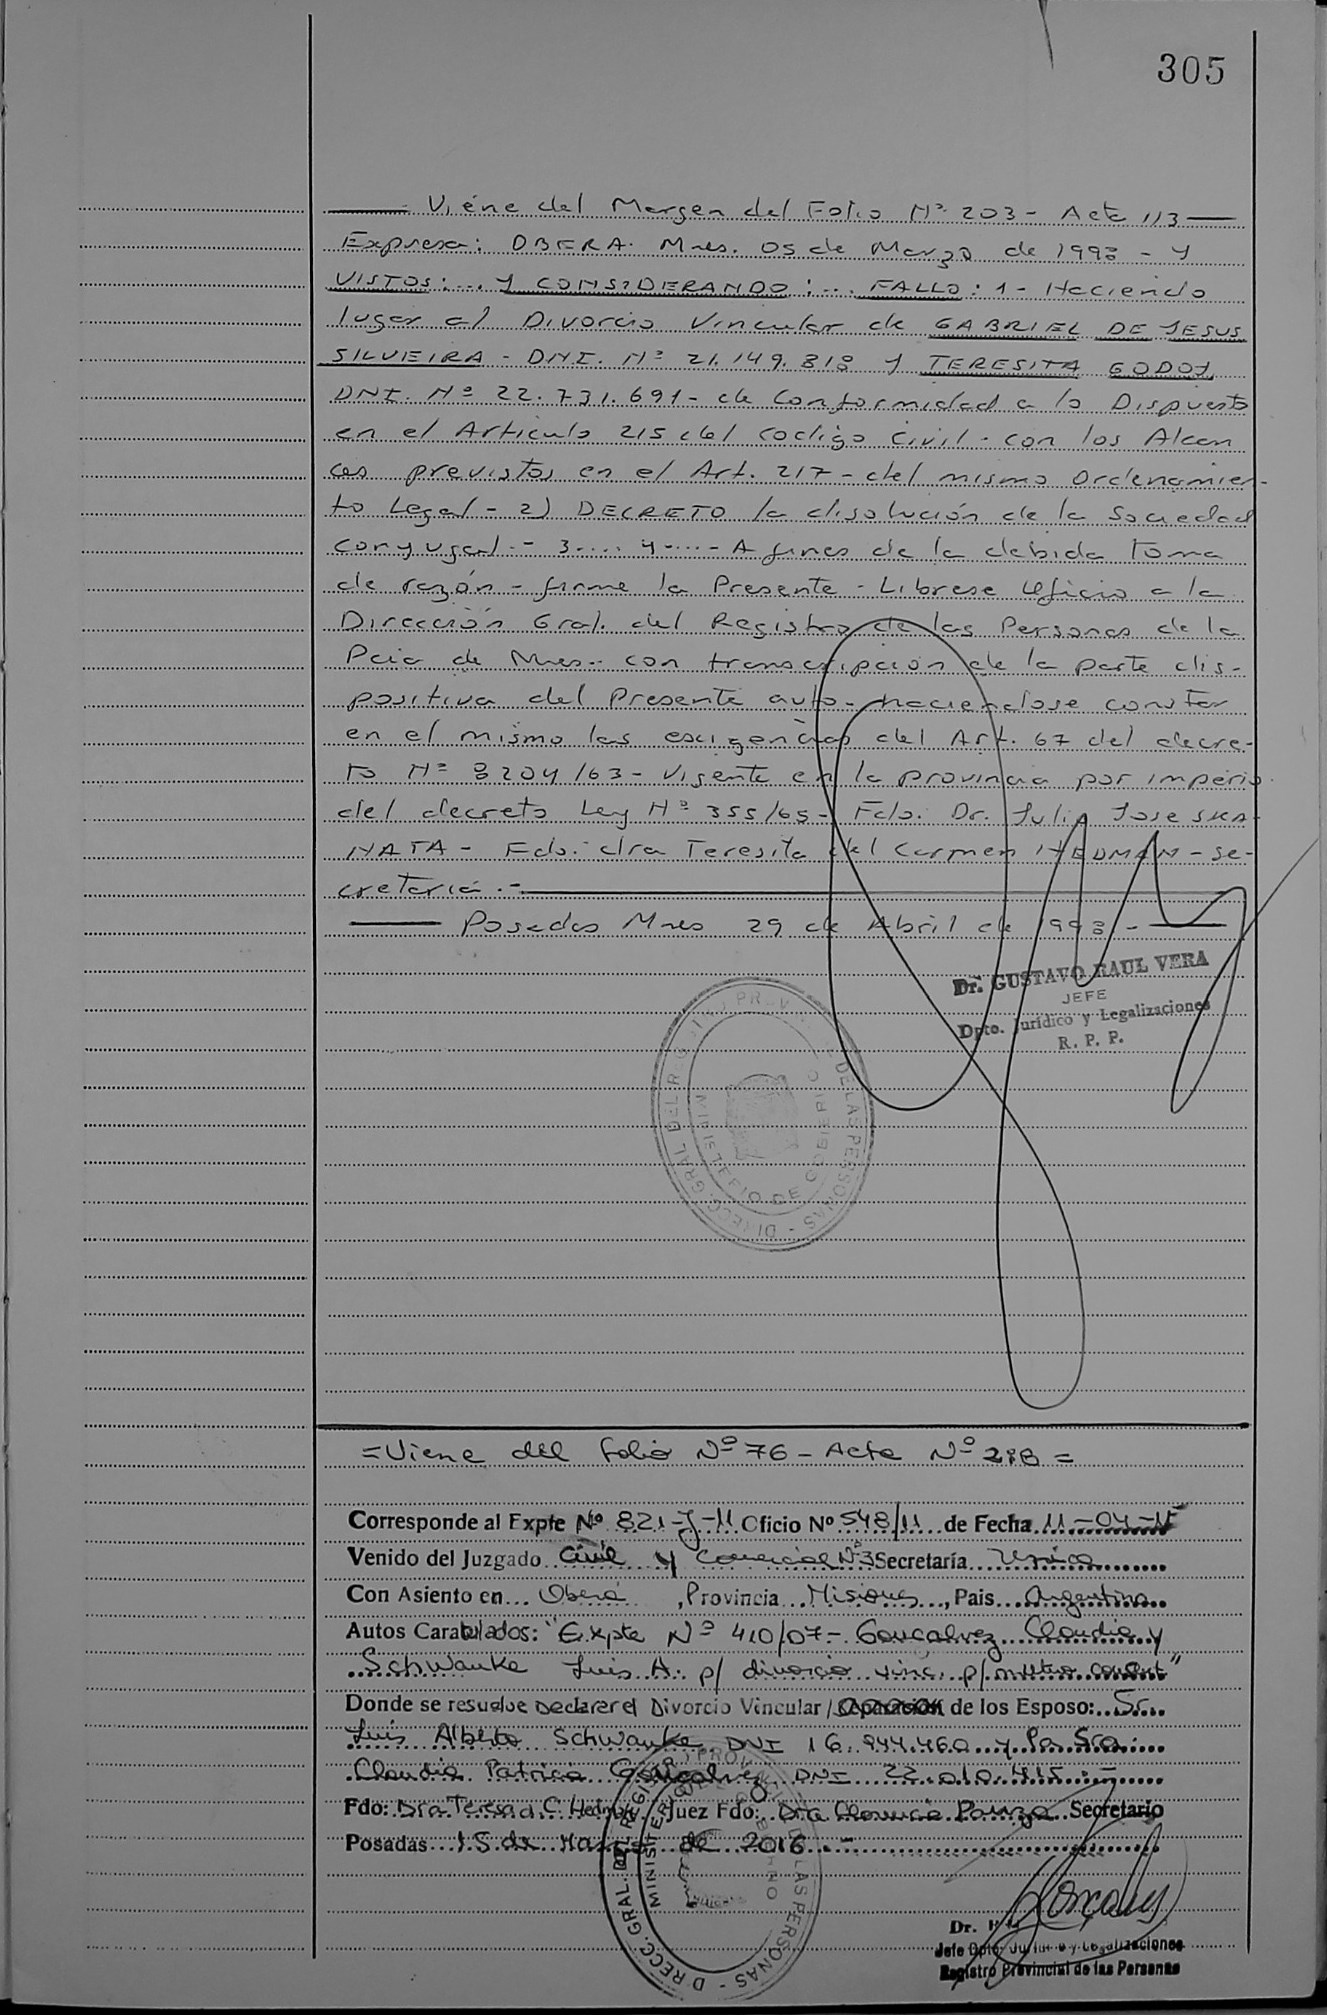 305
Viene del Margen del Folio Nº 203 - Acta 113
Expresa: OBERA. Mnes. 05 de Marzo de 1998 - Y
VISTOS:... Y CONSIDERANDO:... FALLO: 1 - Haciendo
lugar al Divorcio Vincular de GABRIEL DE JESUS
SILVEIRA - DNI. Nº 21.149.818 y TERESITA GODOY
DNI. Nº 22.731.691 - de Conformidad a lo Dispuesto
en el Articulo 215 del codigo civil - con los Alcan
ces previstos en el Art. 217 - del mismo Ordenamien-
to Legal - 2) DECRETO la disolución de la Sociedad
conyugal. - 3.... 4.... - A fines de la debida toma
de razón - firme la Presente - Librese Oficio a la
Dirección Gral. del Registro de las Personas de la
Pcia de Mnes - con transcripción de la parte dis-
positiva del Presente auto - haciendose constar
en el mismo las exigencias del Art. 67 del decre-
to Nº 8204/63 - Vigente en la provincia por imperio
del decreto Ley Nº 355/65 - Fdo. Dr. Julio Jose SKA-
NATA - Fdo. dra Teresita del Carmen HEDMAN - Se-
cretaria. -
Posadas Mnes 29 de Abril de 1998 -
Dr. GUSTAVO RAUL VERA
JEFE
Dpto. Jurídico y Legalizaciones
R. P. P.
DIRECC. GRAL. DEL REG PROV DE LAS PERSONAS
MINISTERIO DE GOBIERNO
= Viene del folio Nº 76 - Acta Nº 218 =
Corresponde al Expte Nº 821-J-11 Oficio Nº 548/11 de Fecha 11-04-11
Venido del Juzgado Civil y Comercial Nº3 Secretaría Unica
Con Asiento en Obera, Provincia Misiones, Pais Argentina
Autos Caratulados: "Expte Nº 410/07 - Goncalvez Claudia y
Schwanke Luis A. p/ divorcio vinc. p/ mutuo consent"
Donde se resuelve Declarar el Divorcio Vincular / Separacion de los Esposo: Sr.
Luis Alberto Schwanke DNI 16.944.460 y la Sra.
Claudia Patrica Goncalvez DNI 22.010.415 -
Fdo: Dra Teresa C. Hedman Juez Fdo: Dra Secretario
Posadas 15 de de 2016 -
DIRECC. GRAL. DEL REG PROV DE LAS PERSONAS
MINISTE
Dr.
Jefe Dpto. Jurídico y Legalizaciones
Registro Provincial de las Personas